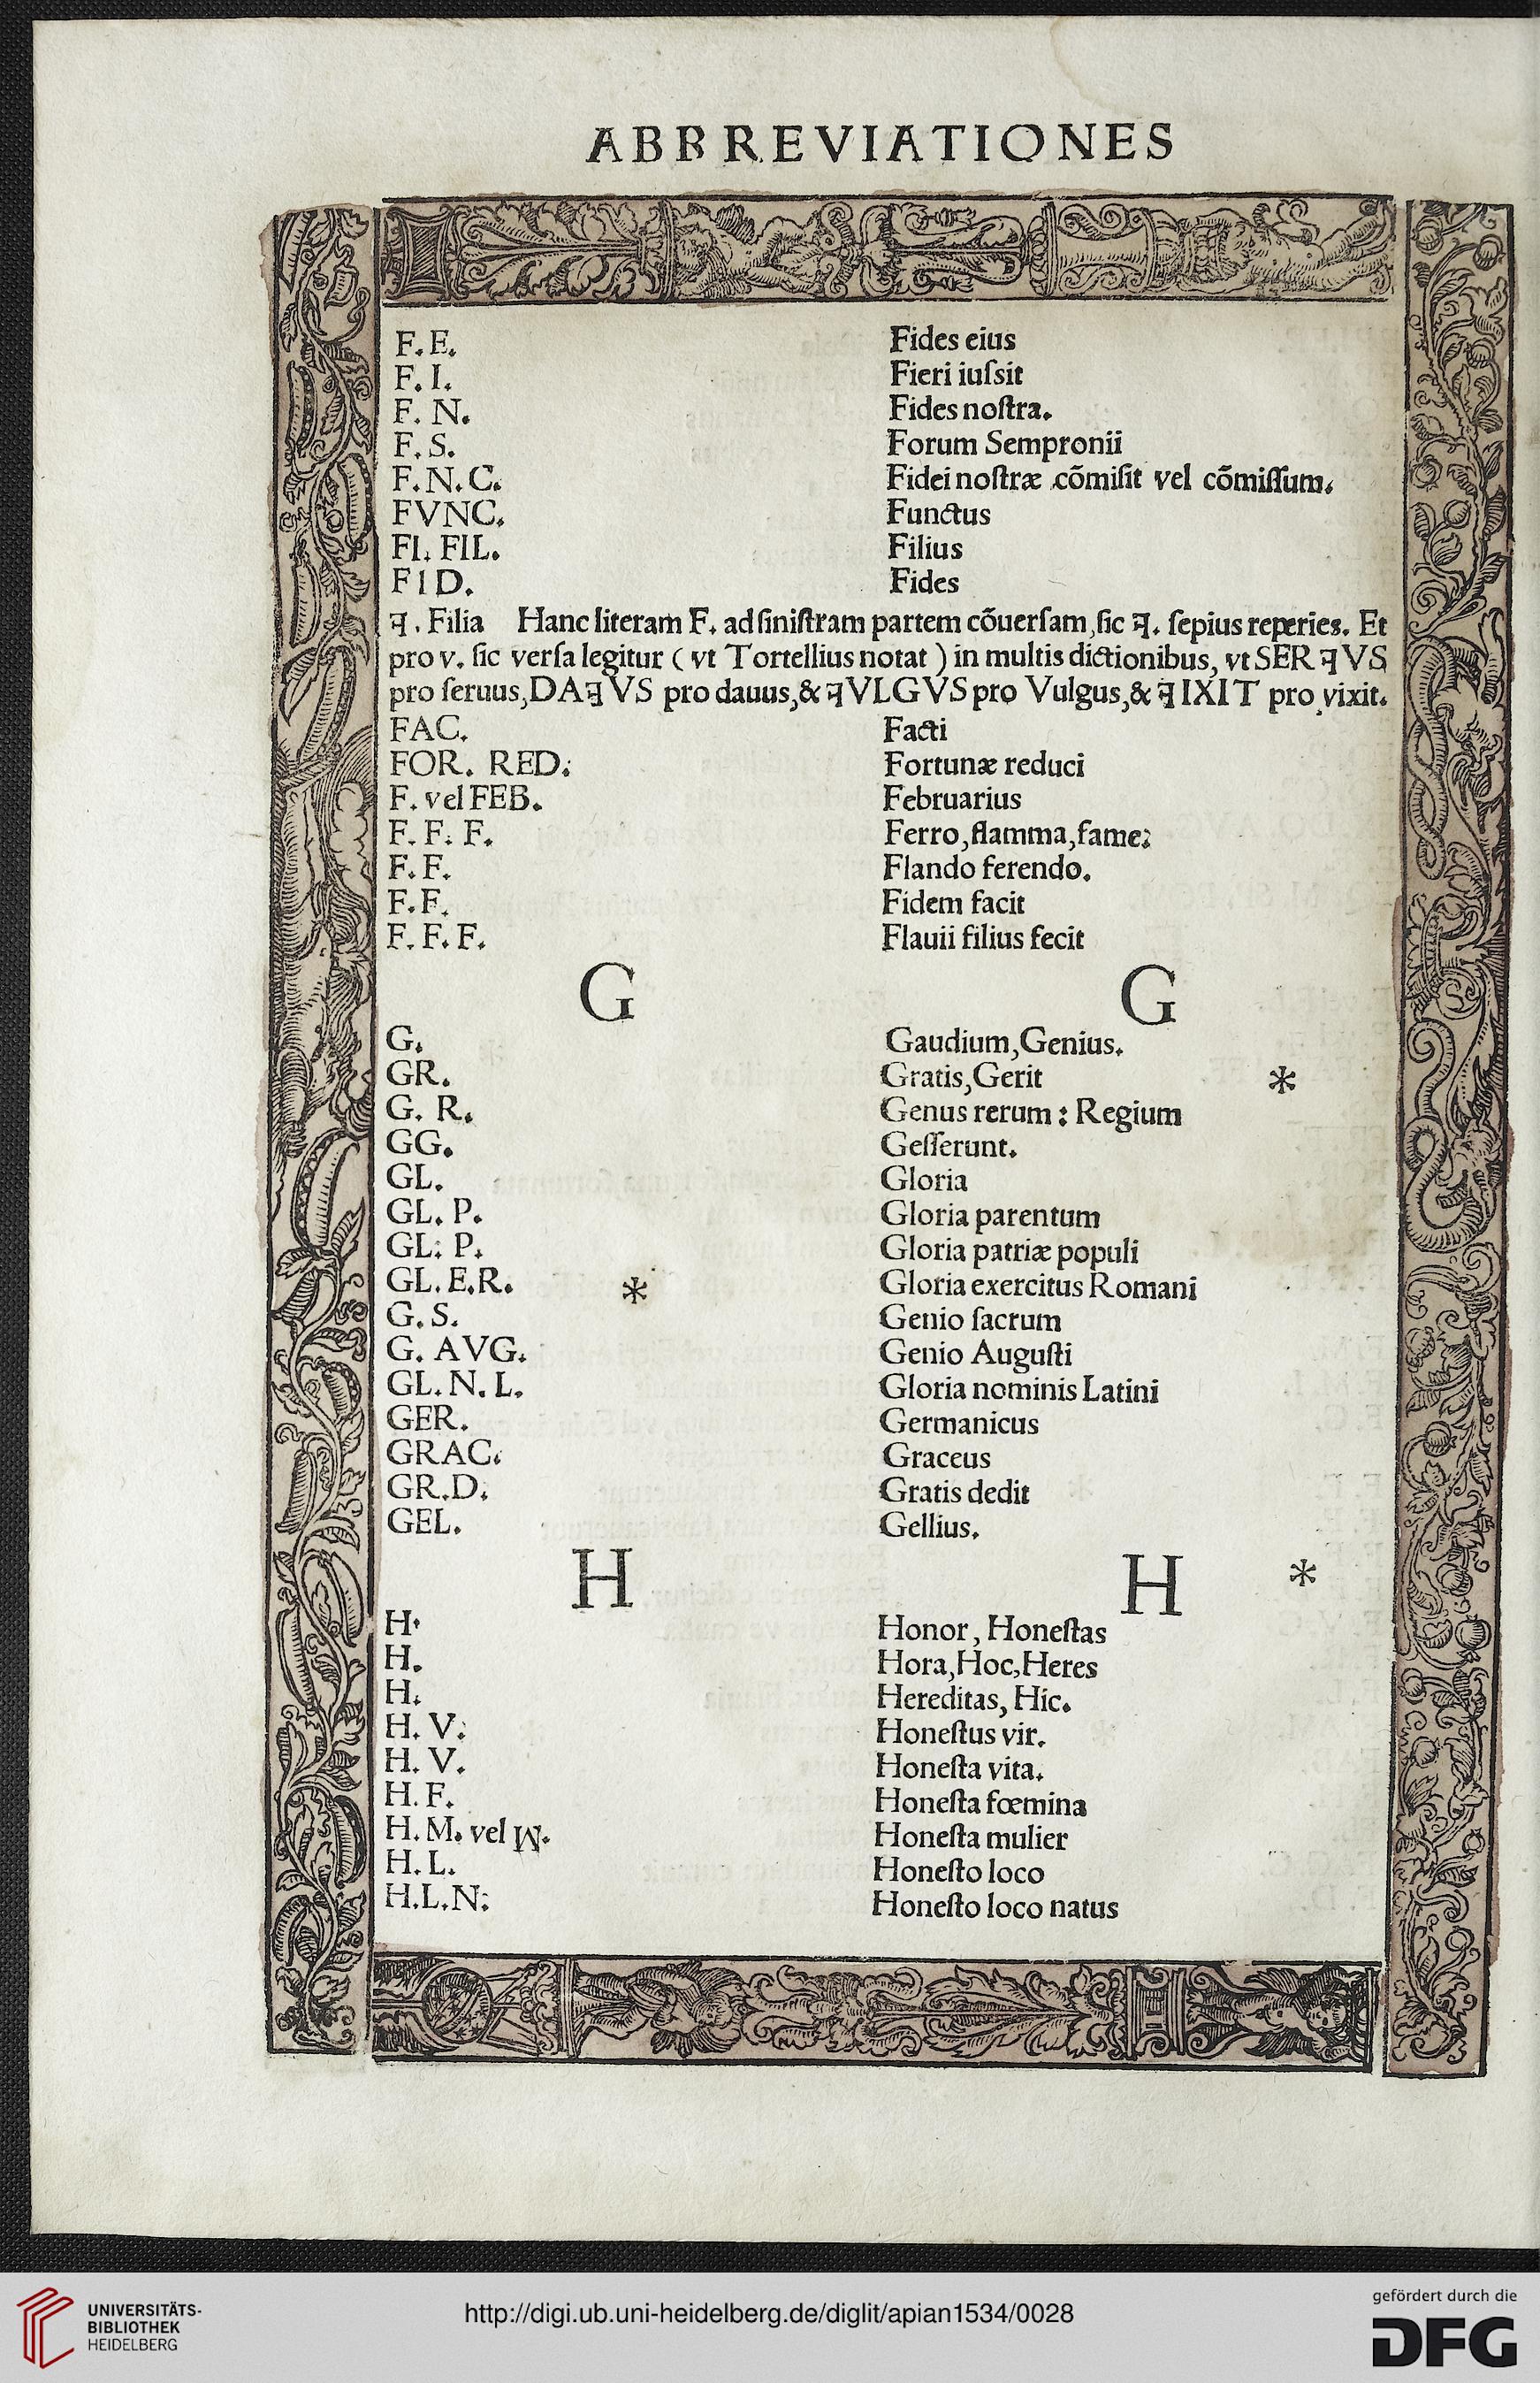 ABBREVIATIONES
F. E. Fides eius
F. I. Fieri iuſsit
F. N. Fides noſtra.
F. S. Forum Sempronii
F. N. C. Fidei noſtræ cõmiſit vel cõmiſſum.
FVNC. Functus
FI. FIL. Filius
FID. Fides
ꟻ. Filia Hanc literam F. ad ſiniſtram partem cõuerſam, ſic ꟻ. ſepius reperies. Et
pro v. ſic verſa legitur ( vt Tortellius notat ) in multis dictionibus, vt SER ꟻ VS
pro ſeruus, DA ꟻ VS pro dauus, & ꟻ VLGVS pro Vulgus, & ꟻ IXIT pro vixit.
FAC. Facti
FOR. RED: Fortunæ reduci
F. vel FEB. Februarius
F. F. F. Ferro, flamma, fame:
F. F. Flando ferendo.
F. F. Fidem facit
F. F. F. Flauii filius fecit
G G
G. Gaudium, Genius.
GR. Gratis, Gerit *
G. R. Genus rerum : Regium
GG. Geſſerunt.
GL. Gloria
GL. P. Gloria parentum
GL: P. Gloria patriæ populi
GL. E. R. * Gloria exercitus Romani
G. S. Genio ſacrum
G. AVG. Genio Auguſti
GL. N. L. Gloria nominis Latini
GER. Germanicus
GRAC. Graceus
GR. D. Gratis dedit
GEL. Gellius.
H H *
H· Honor, Honeſtas
H. Hora, Hoc, Heres
H. Hereditas, Hic.
H. V: Honeſtus vir.
H. V. Honeſta vita.
H. F. Honeſta fœmina
H. M. vel ꟽ. Honeſta mulier
H. L. Honeſto loco
H. L. N: Honeſto loco natus
UNIVERSITÄTS-
BIBLIOTHEK
HEIDELBERG
http://digi.ub.uni-heidelberg.de/diglit/apian1534/0028
gefördert durch die
DFG